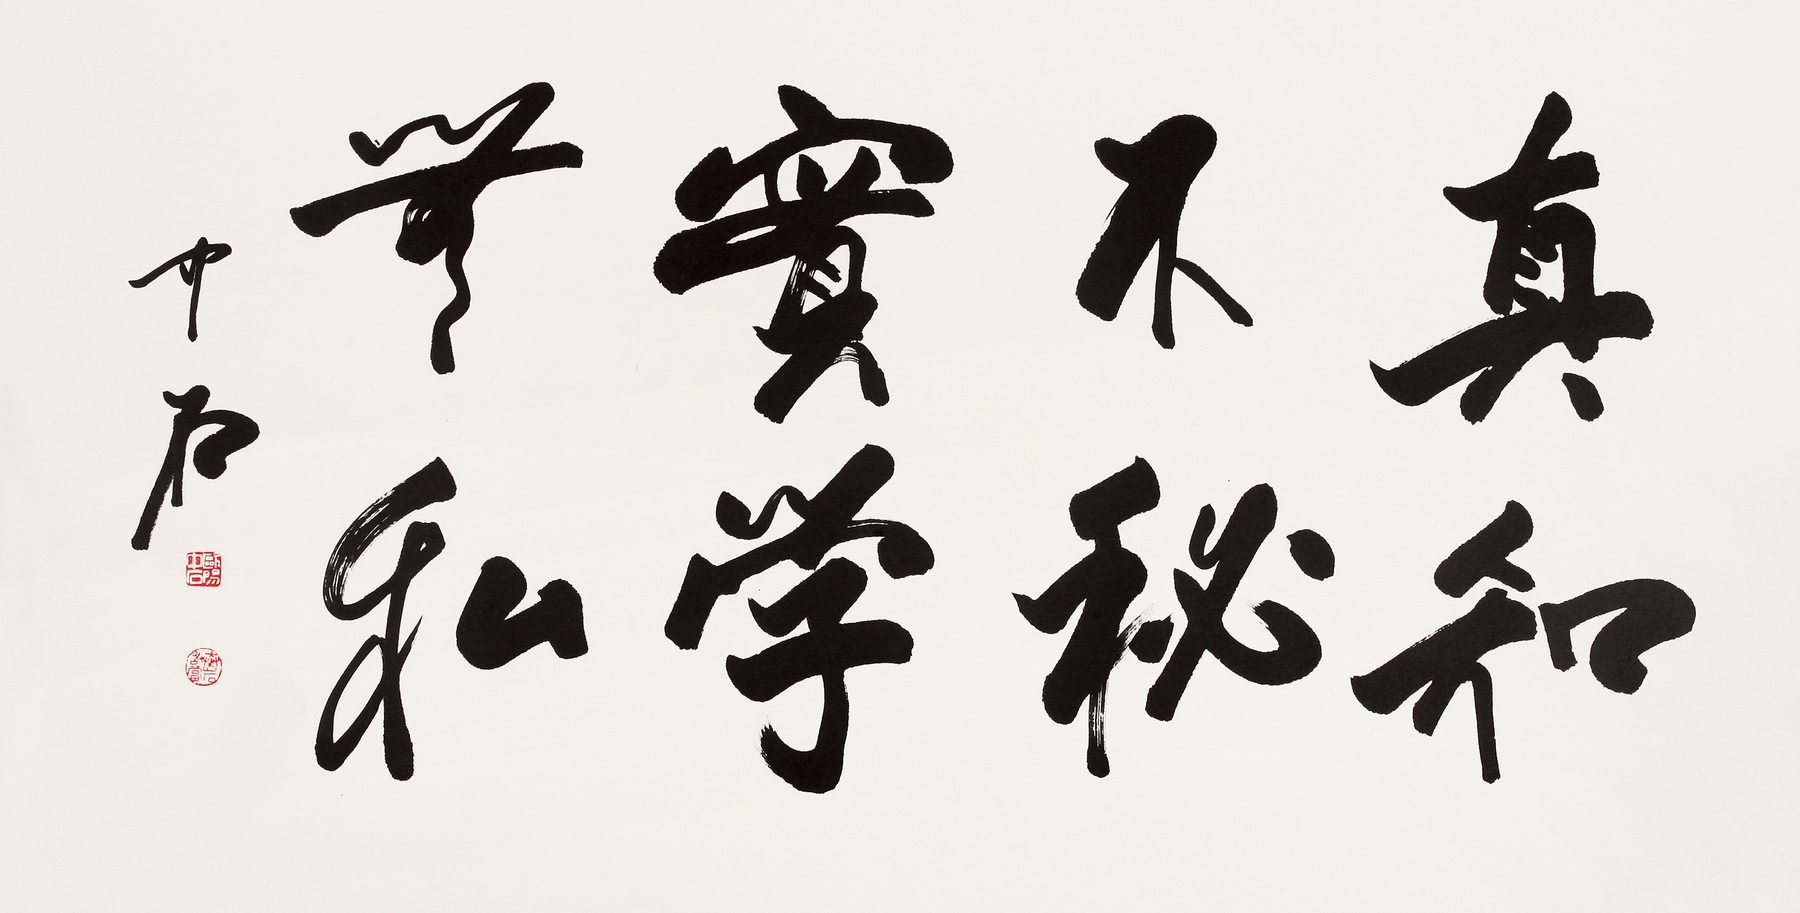 真知
不秘
實学
無私
中石
歐陽中石